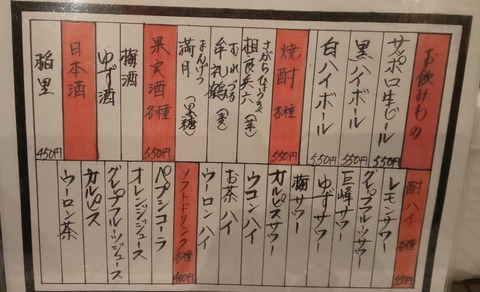 お飲みもの
サッポロ生ビール 550円
黒ハイボール 550円
白ハイボール 550円
焼酎 各種 550円
さがらひょうろく
相良兵六(芋)
むれづる
牟礼鶴(麦)
まんげつ
満月(黒糖)
果実酒 各種 550円
梅酒
ゆず酒
日本酒 450円
稲里
酎ハイ 各種
レモンサワー
グレフルーツサワー
巨峰サワー
ゆずサワー
梅サワー
カルピスサワー
ウコンハイ
お茶ハイ
ウーロンハイ
ソフトドリンク 各種 400円
ペプシコーラ
オレンジジュース
グレプフルーツジュース
カルピス
ウーロン茶